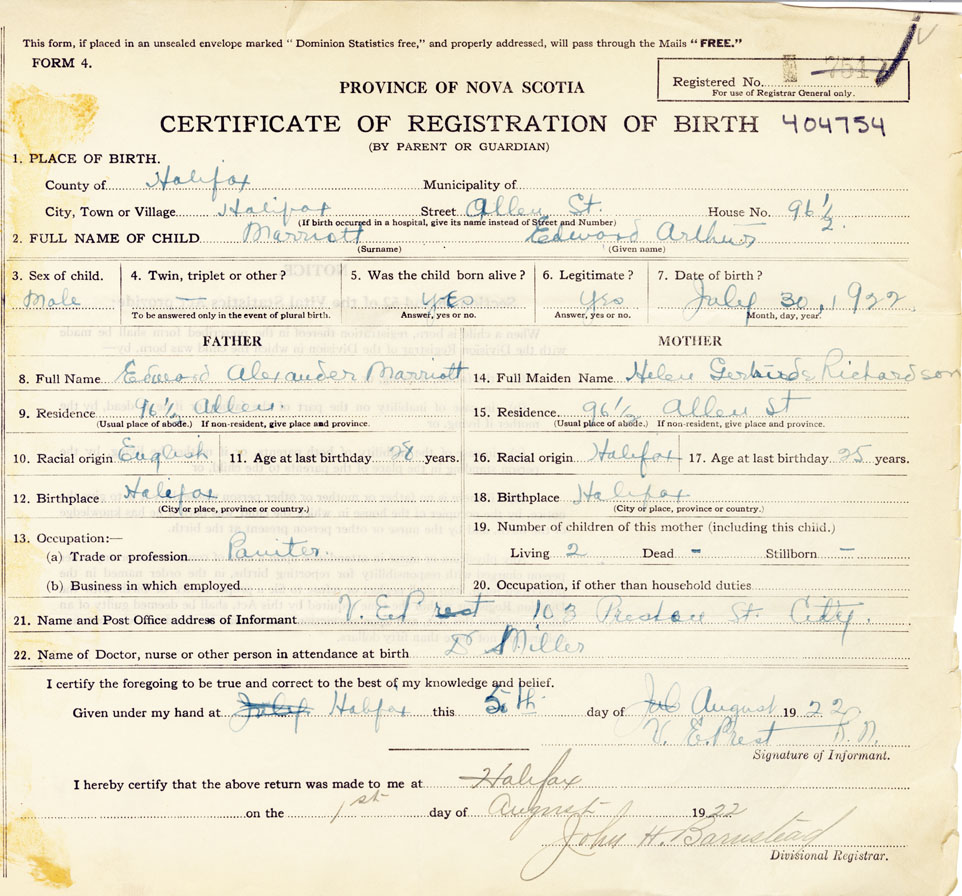 This form, if placed in an unsealed envelope marked "Dominion Statistics free," and properly addressed, will pass through the Mails "FREE."
FORM 4.
Registered No. 7517
For use of Registrar General only.
PROVINCE OF NOVA SCOTIA
CERTIFICATE OF REGISTRATION OF BIRTH 404754
(BY PARENT OR GUARDIAN)
1. PLACE OF BIRTH.
County of Halifax Municipality of
City, Town or Village Halifax Street Allen St. House No. 96 1/2.
(If birth occurred in a hospital, give its name instead of Street and Number)
2. FULL NAME OF CHILD Marriott Edward Arthur
(Surname) (Given name)
3. Sex of child. 4. Twin, triplet or other? 5. Was the child born alive? 6. Legitimate? 7. Date of birth?
Male — yes Yes July 30, 1922.
To be answered only in the event of plural birth. Answer, yes or no. Answer, yes or no. Month, day, year.
FATHER MOTHER
8. Full Name Edward Alexander Marriott 14. Full Maiden Name Helen Gertrude Richardson
9. Residence 96 1/2 Allen. 15. Residence. 96 1/2 Allen St
(Usual place of abode.) If non-resident, give place and province. (Usual place of abode.) If non-resident, give place and province.
10. Racial origin English 11. Age at last birthday 28 years. 16. Racial origin Halifax 17. Age at last birthday 25 years.
12. Birthplace Halifax 18. Birthplace Halifax
(City or place, province or country.) (City or place, province or country.)
13. Occupation:— 19. Number of children of this mother (including this child.)
(a) Trade or profession Paniter. Living 2 Dead - Stillborn —
(b) Business in which employed 20. Occupation, if other than household duties
21. Name and Post Office address of Informant V. E. Prest 103 Preston St. City.
22. Name of Doctor, nurse or other person in attendance at birth Dr Miller
I certify the foregoing to be true and correct to the best of my knowledge and belief.
Given under my hand at July Halifax this 5th day of August 1922
V. E. Prest R.N.
Signature of Informant.
I hereby certify that the above return was made to me at Halifax
on the 1st day of August 1922
John H. Barnstead
Divisional Registrar.